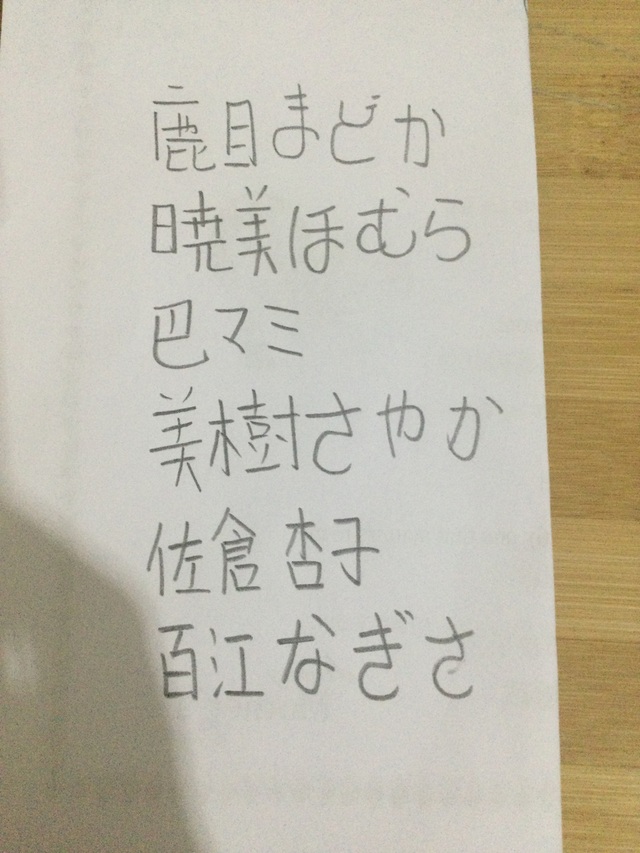 鹿目まどか
暁美ほむら
巴マミ
美樹さやか
佐倉杏子
百江なぎさ